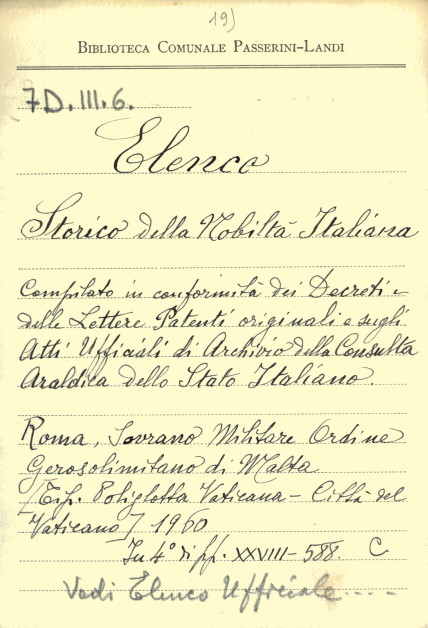 19)
BIBLIOTECA COMUNALE PASSERINI-LANDI
7D.III.6.
Elenco
Storico della Nobiltà Italiana
Compilato in conformità dei Decreti e
delle Lettere Patenti originali e sugli
Atti Ufficiali di Archivio della Consulta
Araldica dello Stato Italiano.
Roma, Sovrano Militare Ordine
Gerosolimitano di Malta
/Tip. Poliglotta Vaticana - Città del
Vaticano/ 1960
In 4° di pp. XXVIII-588. C
Vedi Elenco Ufficiale....